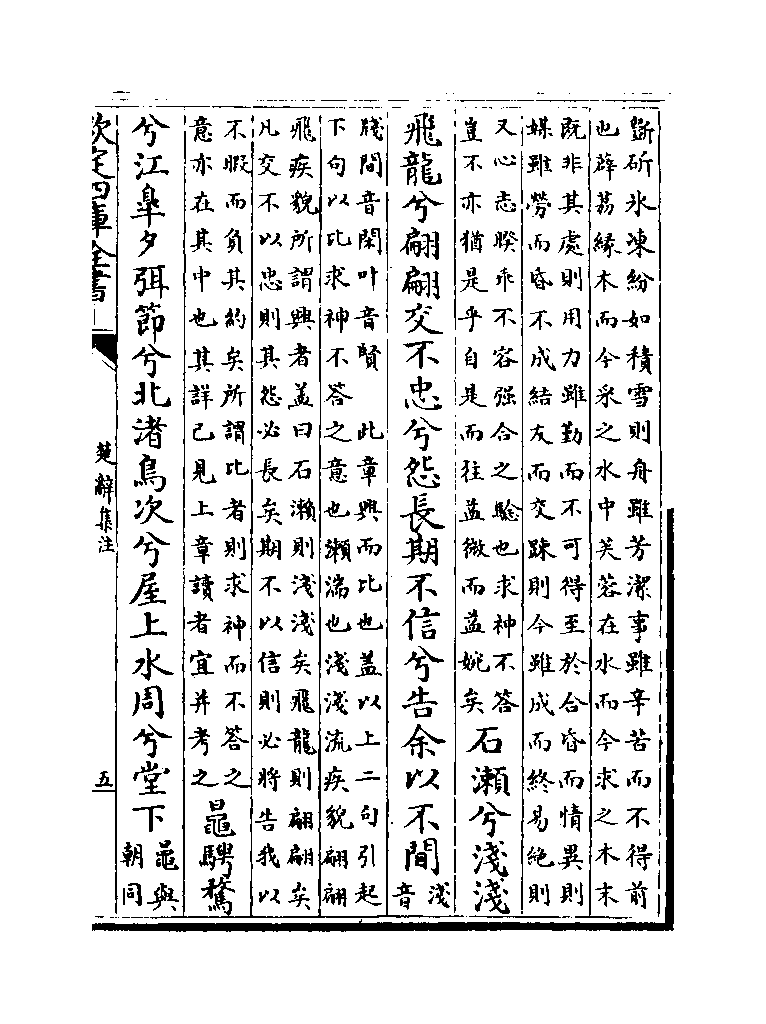 斲斫氷凍紛如積雪則舟雖芳潔事雖辛苦而不得前
也薜荔緣木而今采之水中芙蓉在水而今求之木末
既非其處則用力雖勤而不可得至於合昏而情異則
媒雖勞而昏不成結友而交踈則今雖成而終易絶則
又心志睽乖不容强合之驗也求神不答
豈不亦猶是乎自是而往益微而益婉矣
石瀨兮淺淺
飛龍兮翩翩交不忠兮怨長期不信兮告余以不間
淺
音
牋間音閑叶音賢 此章興而比也盖以上二句引起
下句以比求神不答之意也瀨湍也淺淺流疾貌翩翩
飛疾貌所謂興者盖曰石瀨則淺淺矣飛龍則翩翩矣
凡交不以忠則其怨必長矣期不以信則必將告我以
不暇而負其約矣所謂比者則求神而不答之
意亦在其中也其詳已見上章讀者宜并考之
鼂騁騖
兮江臯夕弭節兮北渚鳥次兮屋上水周兮堂下
鼂與
朝同
欽定四庫全書
楚辭集注
五